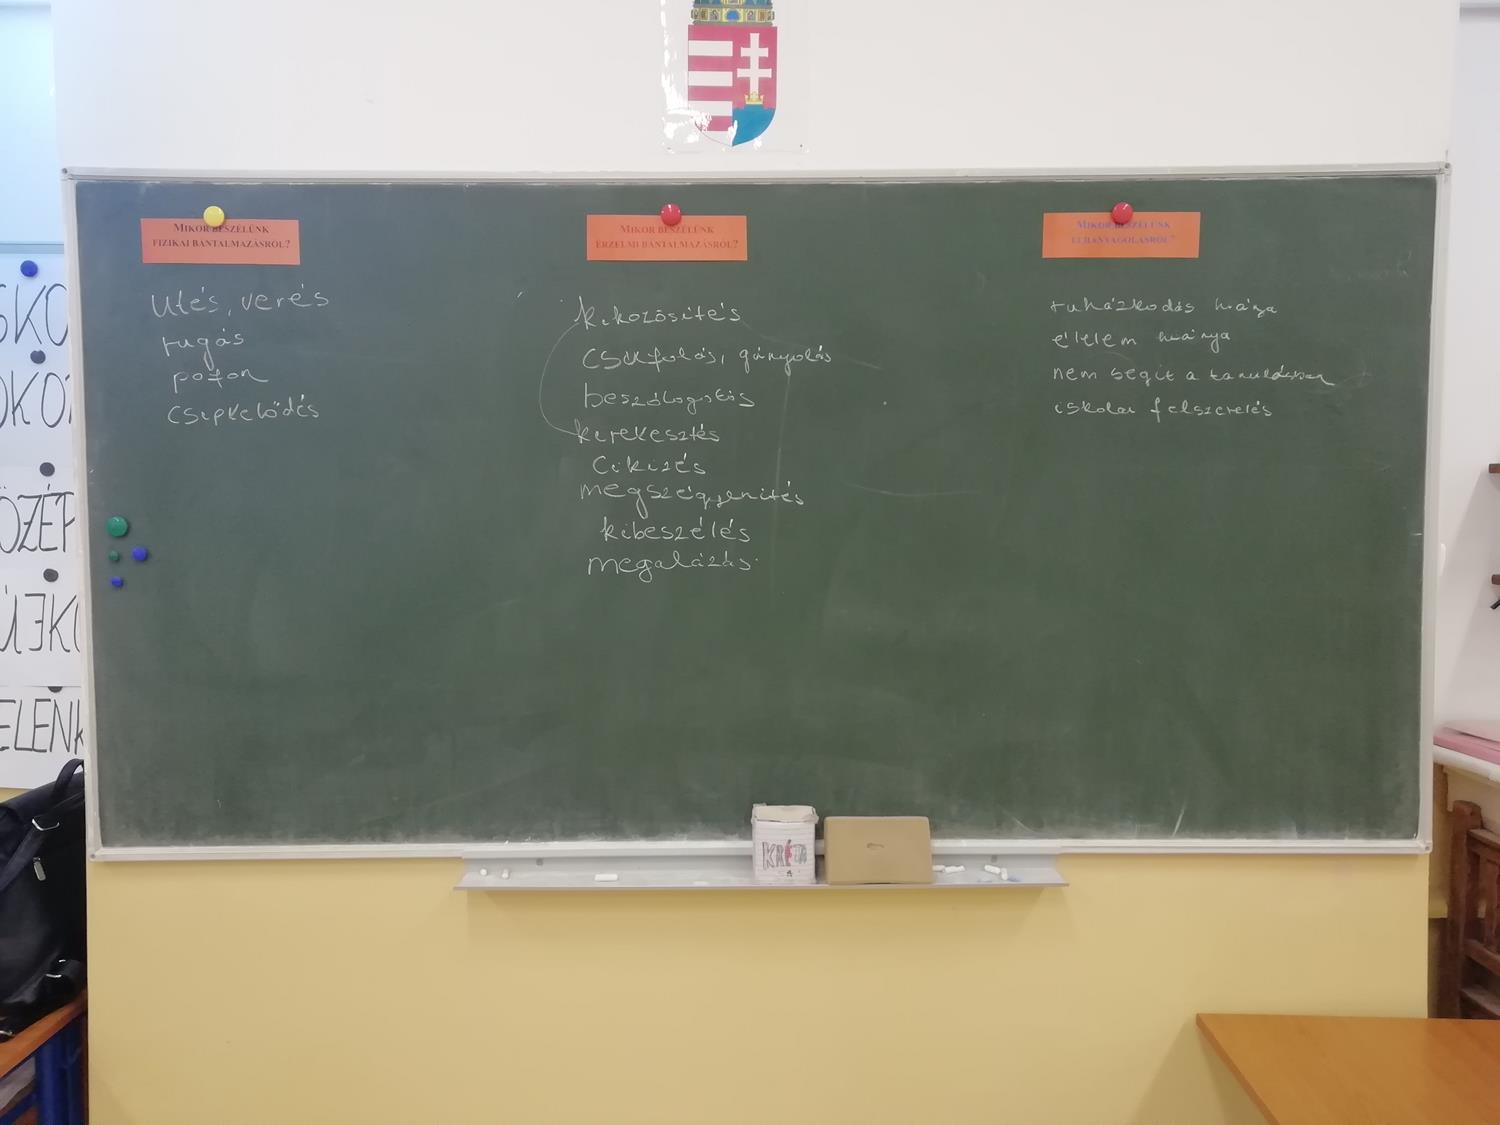 MIKOR BESZÉLÜNK
FIZIKAI BÁNTALMAZÁSRÓL?
ütés, verés
rugás
pofon
csipkelődés
MIKOR BESZÉLÜNK
ÉRZELMI BÁNTALMAZÁSRÓL?
kiközösítés
csúfolás, gúnyolás
beszólogatás
kirekesztés
cikizés
megszégyenítés
kibeszélés
megalázás
MIKOR BESZÉLÜNK
ELHANYAGOLÁSRÓL?
ruházkodás hiánya
élelem hiánya
nem segít a tanulásban
iskolai felszerelés
SKO
OKO
ÖZÉP
ELENK
KRÉTA